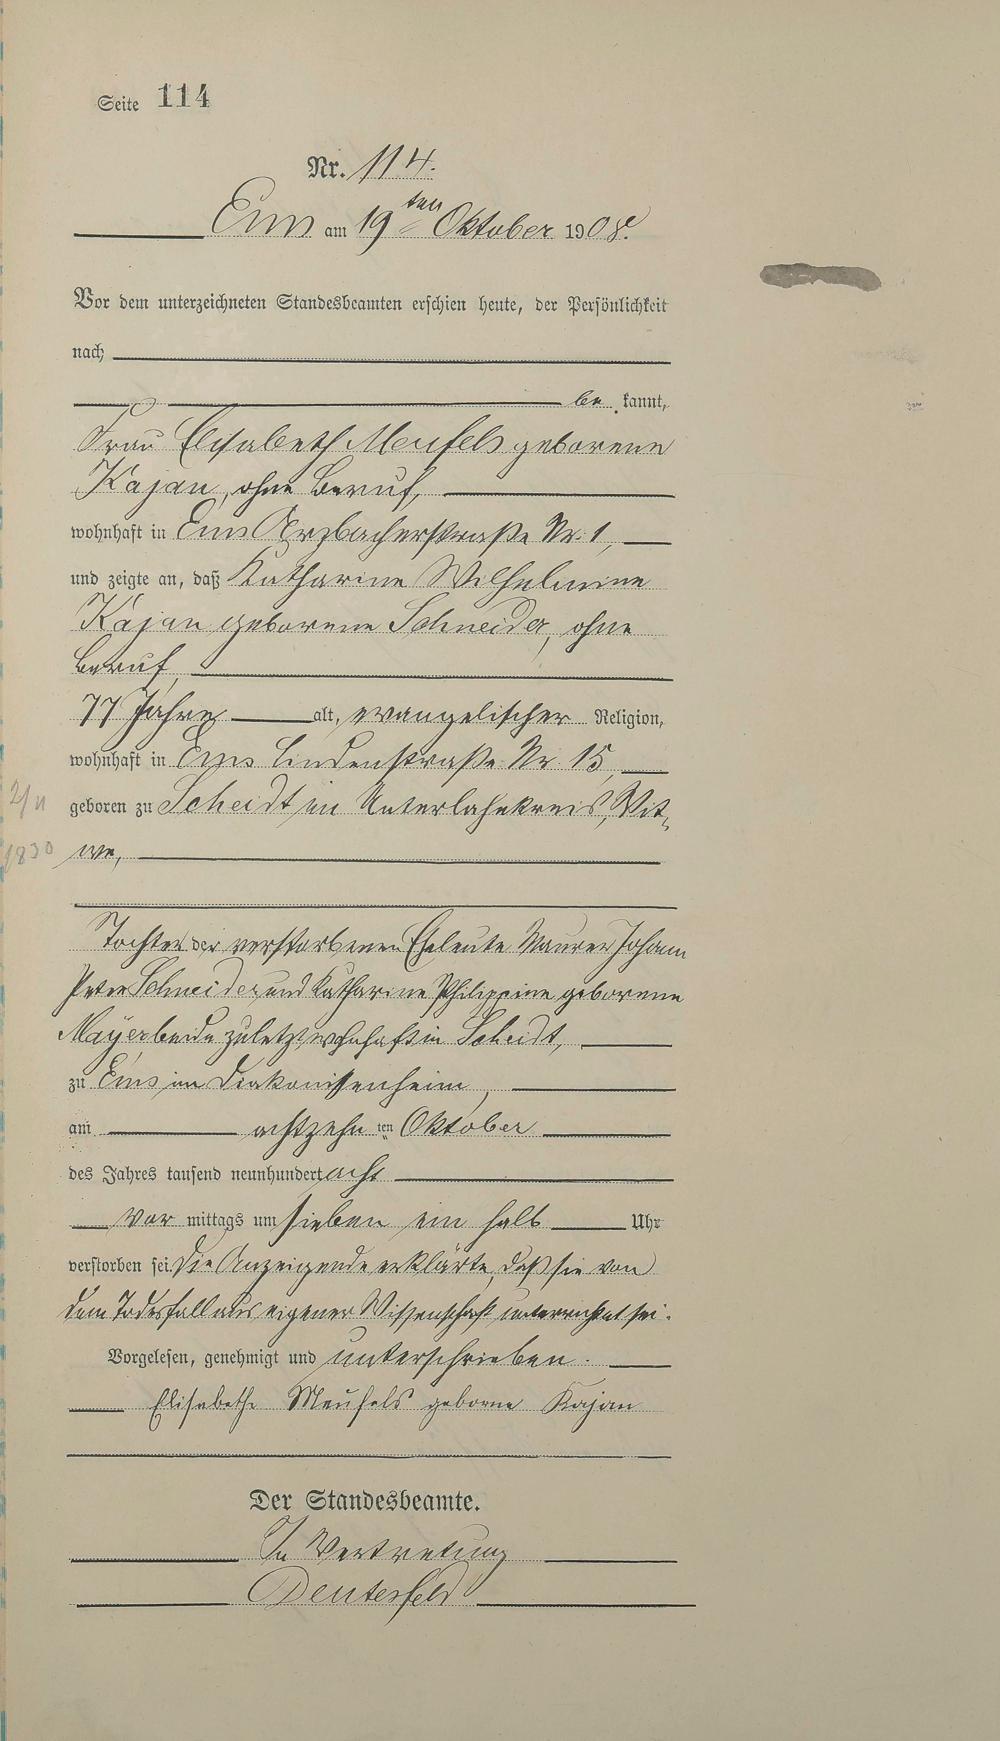 Seite 114
Nr. 114.
Ems am 19ten Oktober 1908.
Vor dem unterzeichneten Standesbeamten erschien heute, der Persönlichkeit
nach
be kannt,
Frau Elisabeth Meufels geborene
Kajan, ohne Beruf,
wohnhaft in Ems Arzbacherstraße Nr. 1,
und zeigte an, daß Katharine Wilhelmine
Kajan geborene Schneider, ohne
Beruf,
77 Jahre alt, evangelischer Religion,
wohnhaft in Ems Lindenstraße Nr. 15,
2/11
geboren zu Scheidt im Unterlahnkreis, Wit-
1830
we,
Tochter der verstorbenen Eheleute Maurer Johann
Peter Schneider und Katharine Philippine geborene
Mayer beide zuletzt wohnhaft in Scheidt,
zu Ems im Diakonissenheim,
am achtzehn ten Oktober
des Jahres tausend neunhundert acht
Vor mittags um sieben ein halb Uhr
verstorben sei. Die Anzeigende erklärte, daß sie von
dem Todesfall aus eigener Wissenschaft unterrichtet sei.
Vorgelesen, genehmigt und unterschrieben.
Elisabethe Meufels geborne Kajan
Der Standesbeamte.
In Vertretung